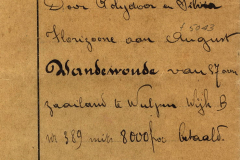 Door Polydoor en Silvia
Florizoone aan August
Vandewoude van 87 aren
zaailand te Wulpen Wijk B
nr 389 mits 8000 fr betaald.